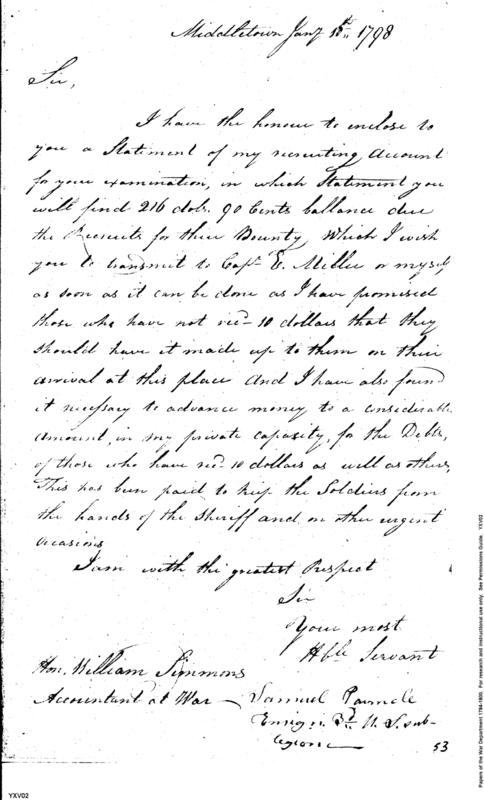 Middletown Jany 1798
Sir,
I have the honour to enclose to
you a Statement of my recruiting Account
for your examination, in which Statement you
will find 216 dols. 90 Cents ballance due
the Recruits for their Bounty, Which I wish
you to transmit to Capt. E. Miller or myself
as soon as it can be done as I have promised
those who have not recd 10 dollars that they
should have it made up to them on their
arrival at this place And I have also found
it necessary to advance money to a considerable
amount, in my private capasity, for the Debts,
of those who have recd 10 dollars as well as others,
This has been paid to keep the Soldiers from
the hands of the Sheriff and on other urgent
occasions
I am with the greatest Respect
Sir
Your most
Hble Servant
Hon. William Simmons
Accountant at War
Samuel Parmele
Ensign 3d U. S. sub-
legion
53
YXV02
Papers of the War Department 1784-1800. For research and instructional use only. See Permissions Guide. YXV02